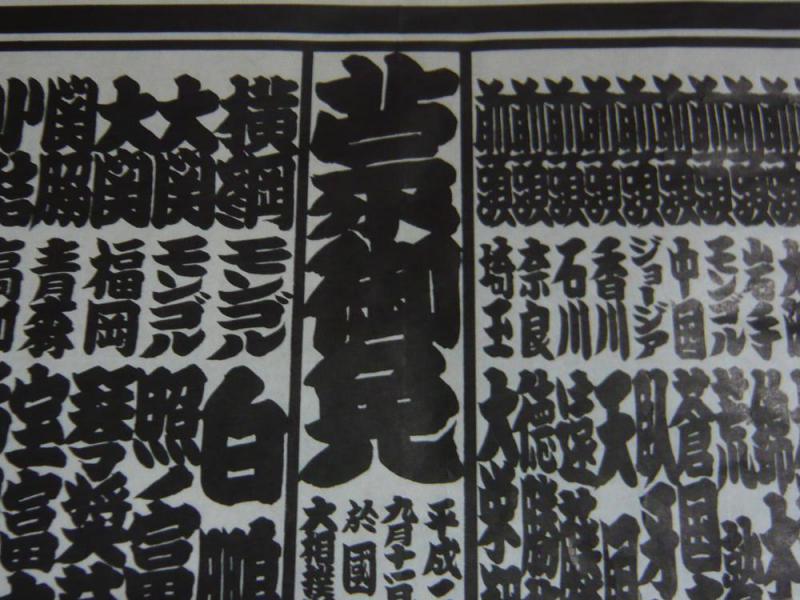 前頭 岩手 錦木
前頭 モンゴル 荒
前頭 中国 蒼国
前頭 ジョージア 臥牙
前頭 香川 天
前頭 石川 遠藤
前頭 奈良 徳勝
前頭 埼玉 大栄翔
蒙御免
平成
九月十一日
於國
大相撲
横綱 モンゴル 白鵬
大関 モンゴル 照ノ富
大関 福岡 琴奨菊
関脇 青森 宝富
小結 高知